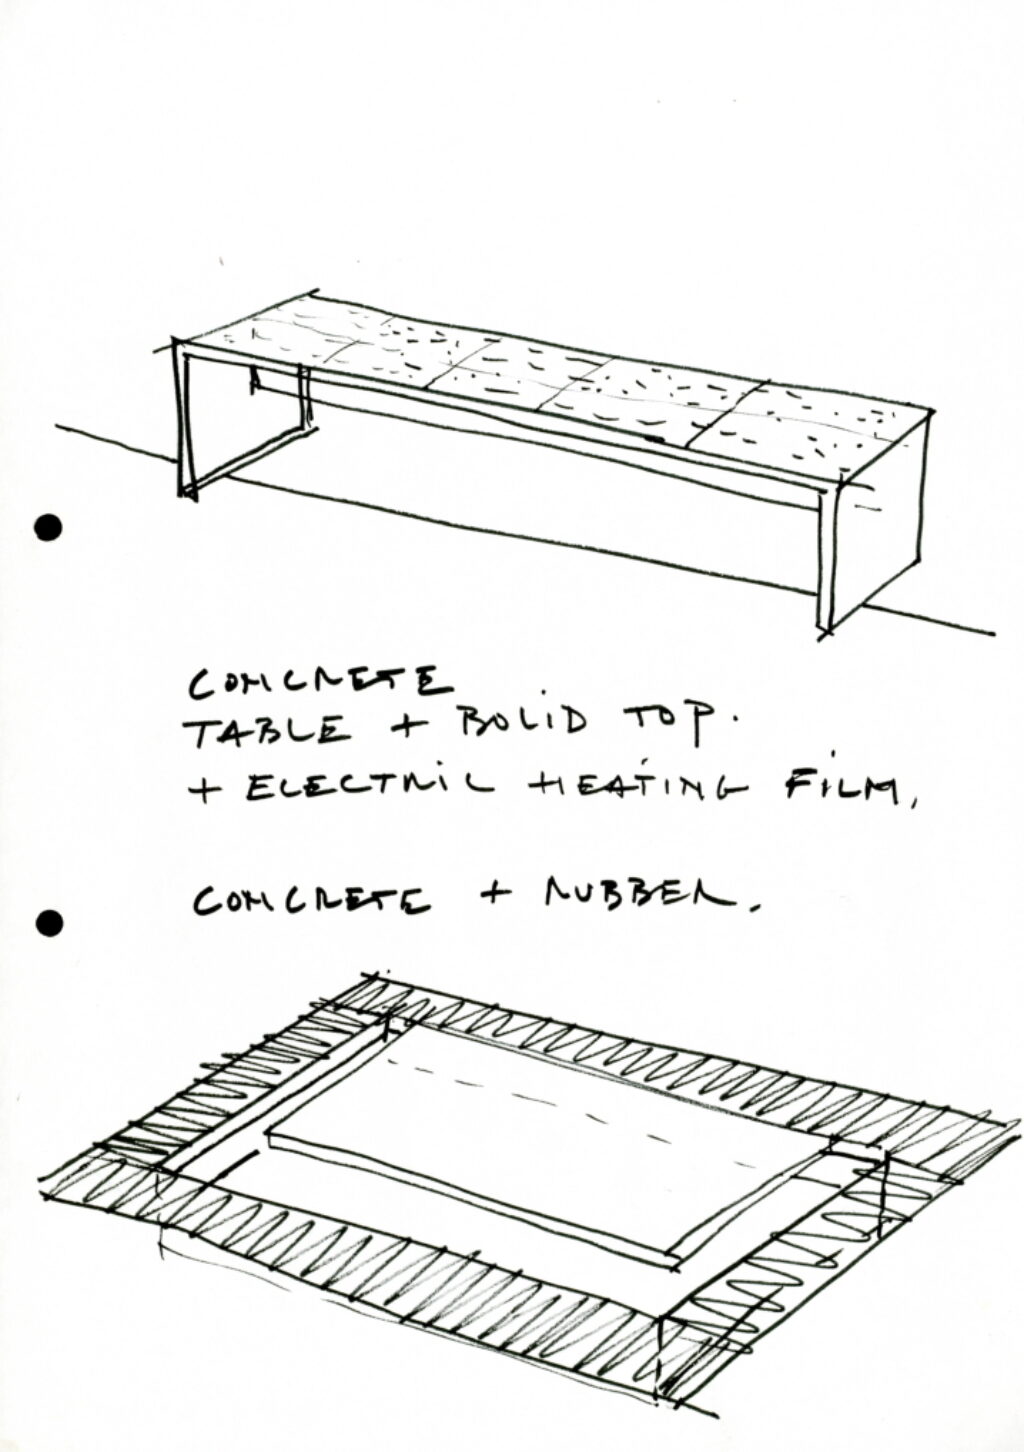 CONCRETE
TABLE + BOLID TOP.
+ ELECTRIC HEATING FILM.
CONCRETE + RUBBER.